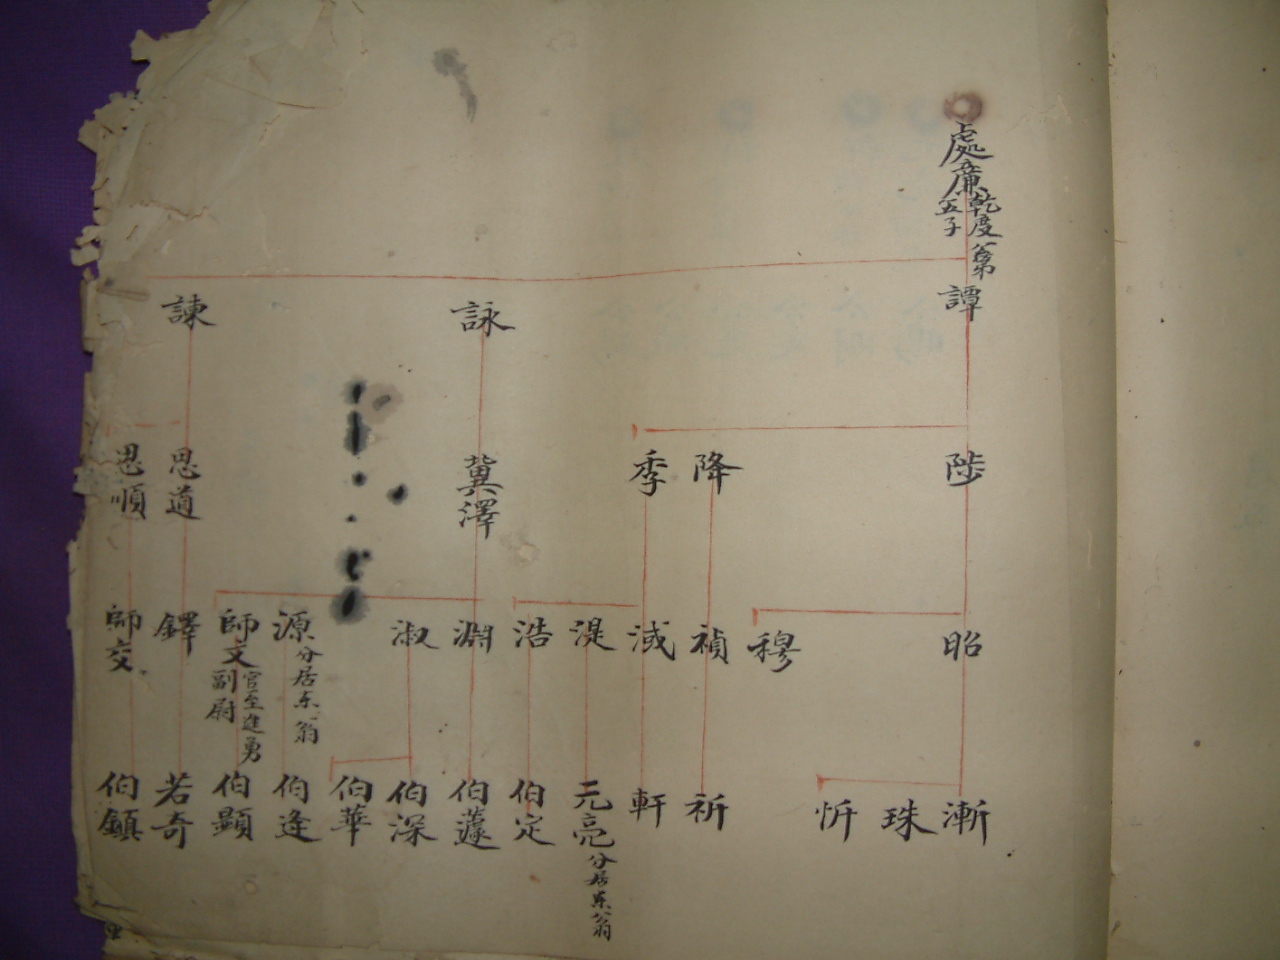 處廉 乾度公第五子
譚
詠
諫
陟
降
季
冀澤
思道
思順
昭
穆
禎
減
湜
浩
淵
淑
源 分居东翁
師文 官至進勇副尉
鐸
師交
漸
珠
忻
祈
軒
元亮 分居东翁
伯定
伯蘧
伯深
伯華
伯逢
伯顯
若奇
伯鎮